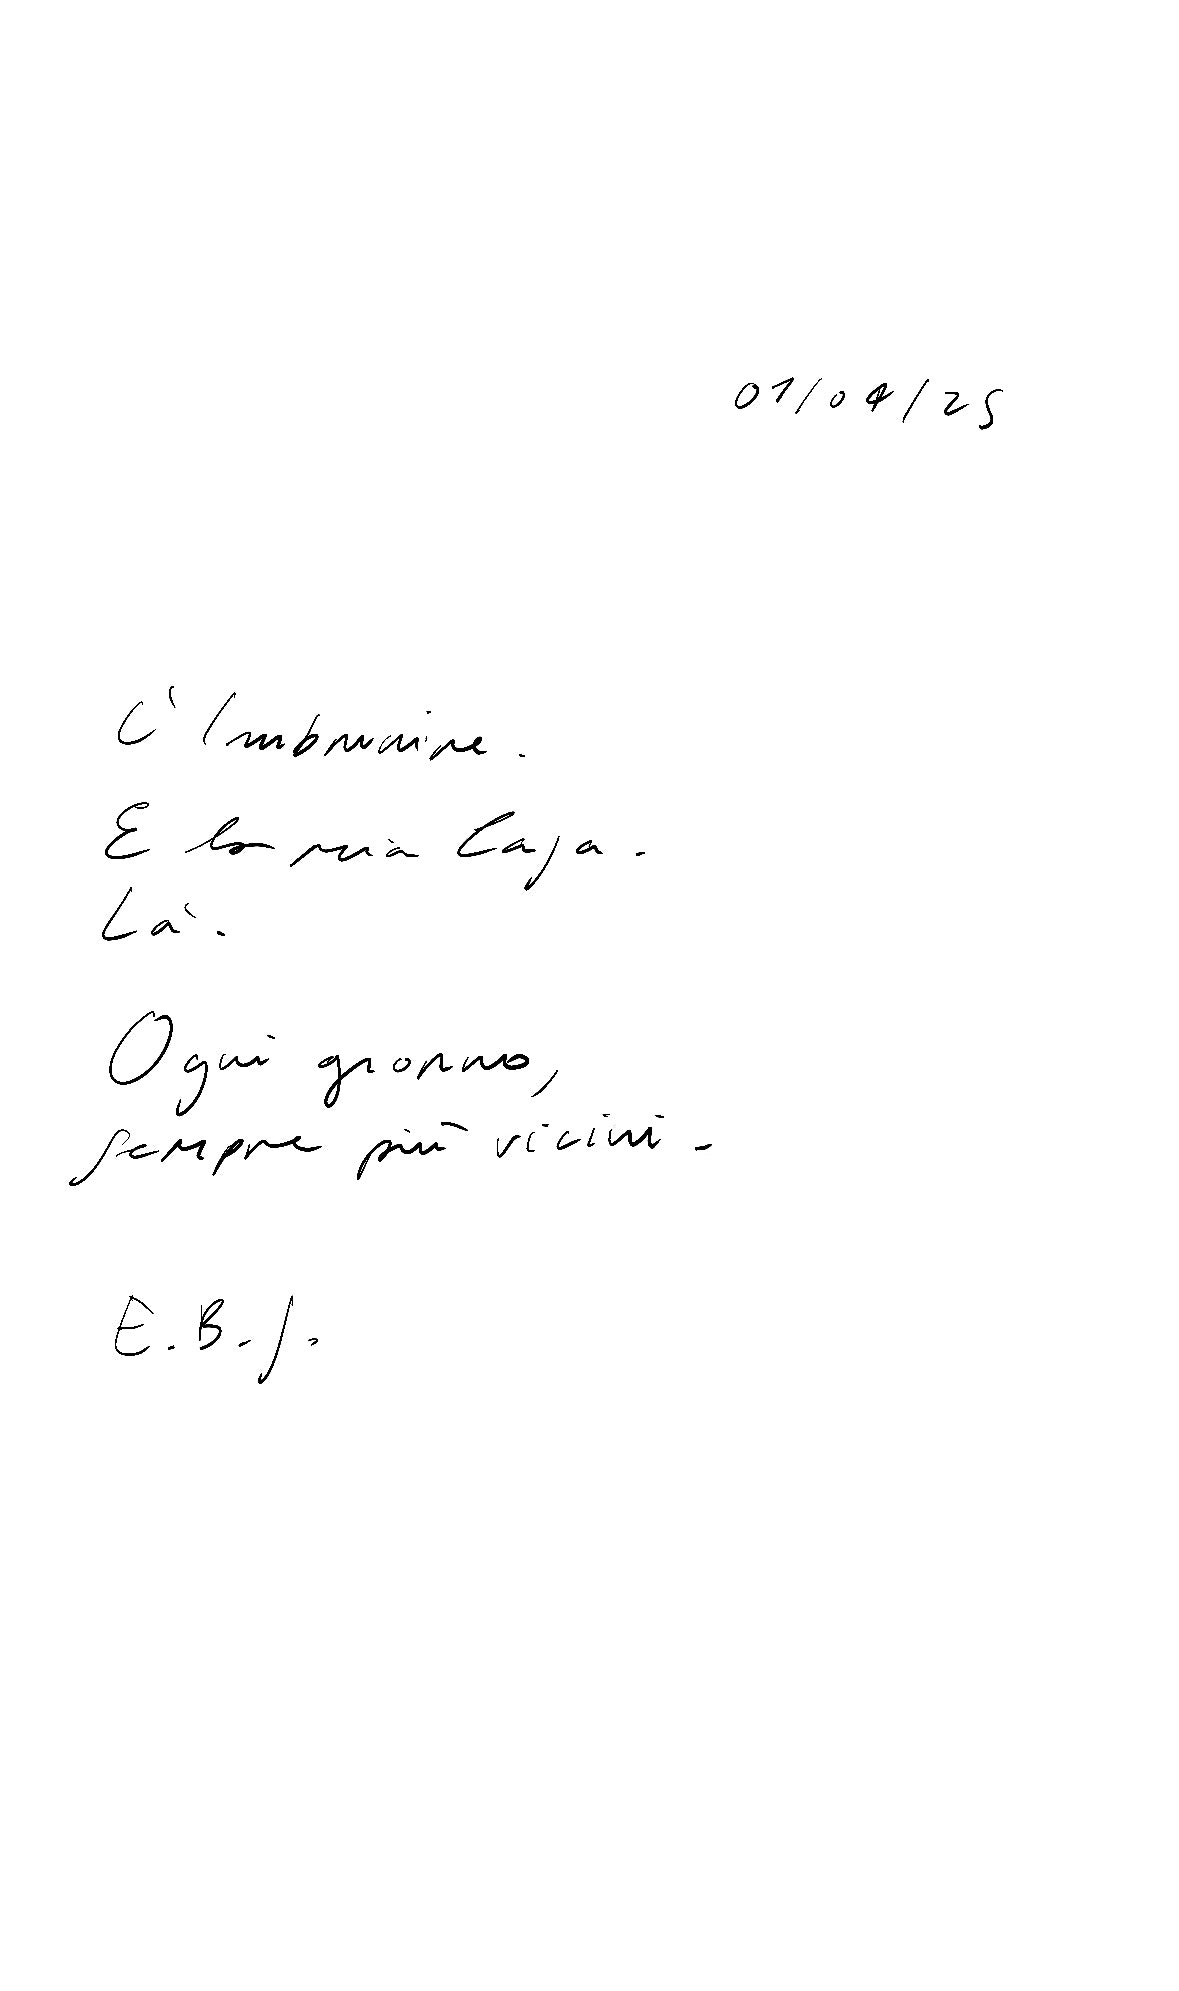 01/04/25
L'Imbrunire.
È la mia Casa.
Là.
Ogni giorno,
sempre più vicini.
E.B.J.